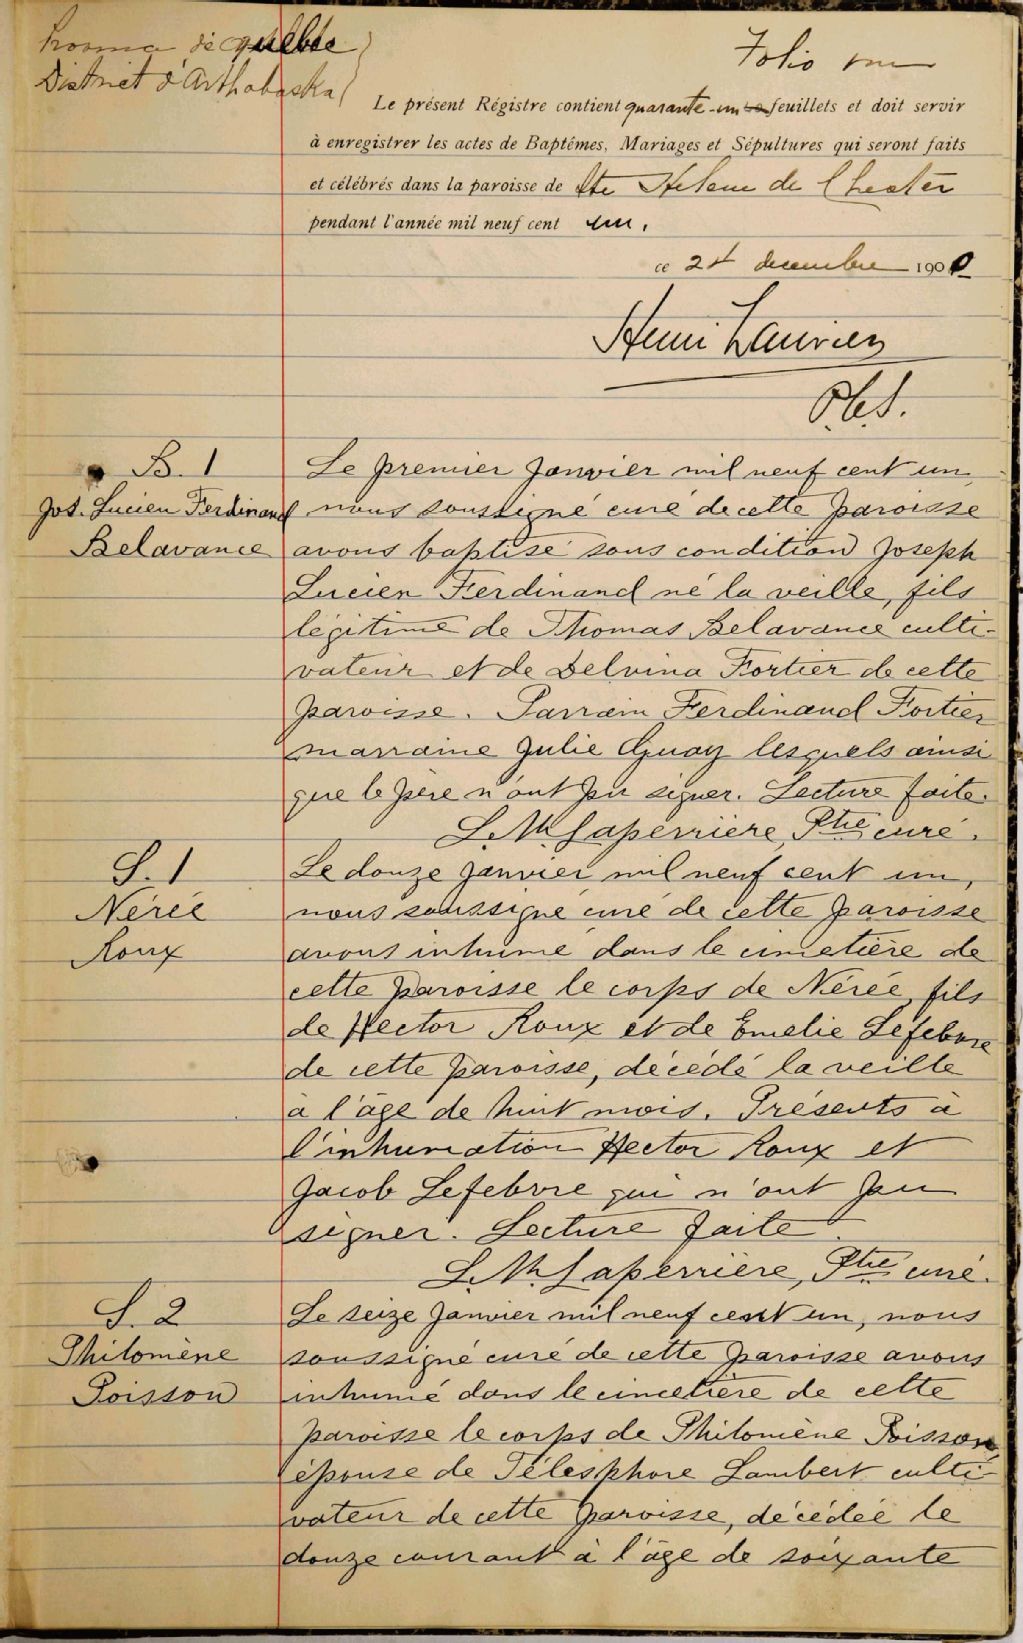 Province de Québec
District d'Arthabaska
Folio un
Le présent Régistre contient quarante-un feuillets et doit servir
à enregistrer les actes de Baptêmes, Mariages et Sépultures qui seront faits
et célébrés dans la paroisse de Ste Helene de Chester
pendant l'année mil neuf cent un.
ce 21 decembre 1900
Henri Laurier
P.C.S.
B. 1
Jos. Lucien Ferdinand
Belavance
Le premier Janvier mil neuf cent un,
nous soussigné curé de cette paroisse
avons baptisé sous condition Joseph
Lucien Ferdinand né la veille, fils
légitime de Thomas Belavance culti-
vateur et de Delvina Fortier de cette
paroisse. Parrain Ferdinand Fortier
marraine Julie Guay lesquels ainsi
que le père n'ont pu signer. Lecture faite.
L. M. Laperrière, Ptre curé.
S. 1
Nérée
Roux
Le douze Janvier mil neuf cent un,
nous soussigné curé de cette paroisse
avons inhumé dans le cimetière de
cette paroisse le corps de Nérée, fils
de Hector Roux et de Emelie Lefebvre
de cette paroisse, décédé la veille
à l'âge de huit mois. Présents à
l'inhumation Hector Roux et
Jacob Lefebvre qui n'ont pu
signer. Lecture faite.
L. M. Laperrière, Ptre curé.
S. 2
Philomène
Poisson
Le seize Janvier mil neuf cent un, nous
soussigné curé de cette paroisse avons
inhumé dans le cimetière de cette
paroisse le corps de Philomène Poisson,
épouse de Télesphore Lambert culti-
vateur de cette paroisse, décédée le
douze courant à l'âge de soixante